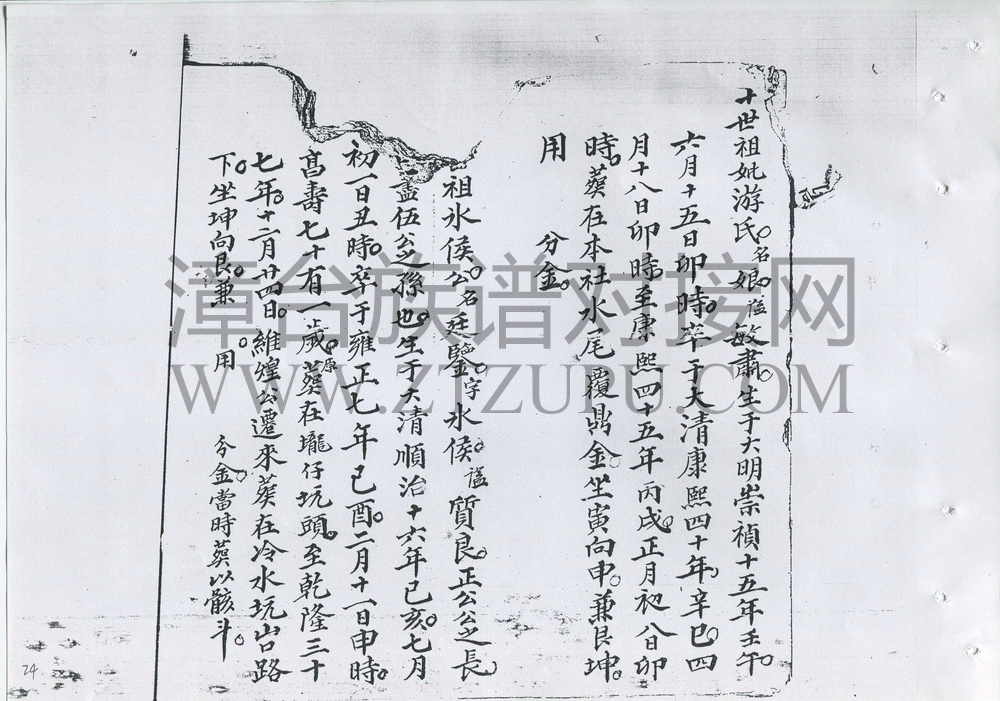 十世祖妣游氏。名娘。謚敏肅。生于大明崇禎十五年壬午。
六月十五日卯時。卒于大清康熙四十年。辛巳。四
月十八日卯時。至康熙四十五年丙戌。正月初八日卯
時。葬在本社水尾覆鼎金。坐寅向申。兼艮坤。
用　分金。
祖氷侯公。名廷鑒。字氷侯。謚質良。正公公之長。
盡伍公之孫也。生于大清順治十六年己亥。七月
初一日丑時。卒于雍正七年己酉。二月十一日申時
高壽七十有一歲。原葬在壠仔坑頭。至乾隆三十
七年。十二月廿四日。維煌公遷來葬在冷水坑山路
下。坐坤向艮。兼。用　分金。當時葬以骸斗。
24
漳台族谱对接网
WWW.ZTZUPU.COM